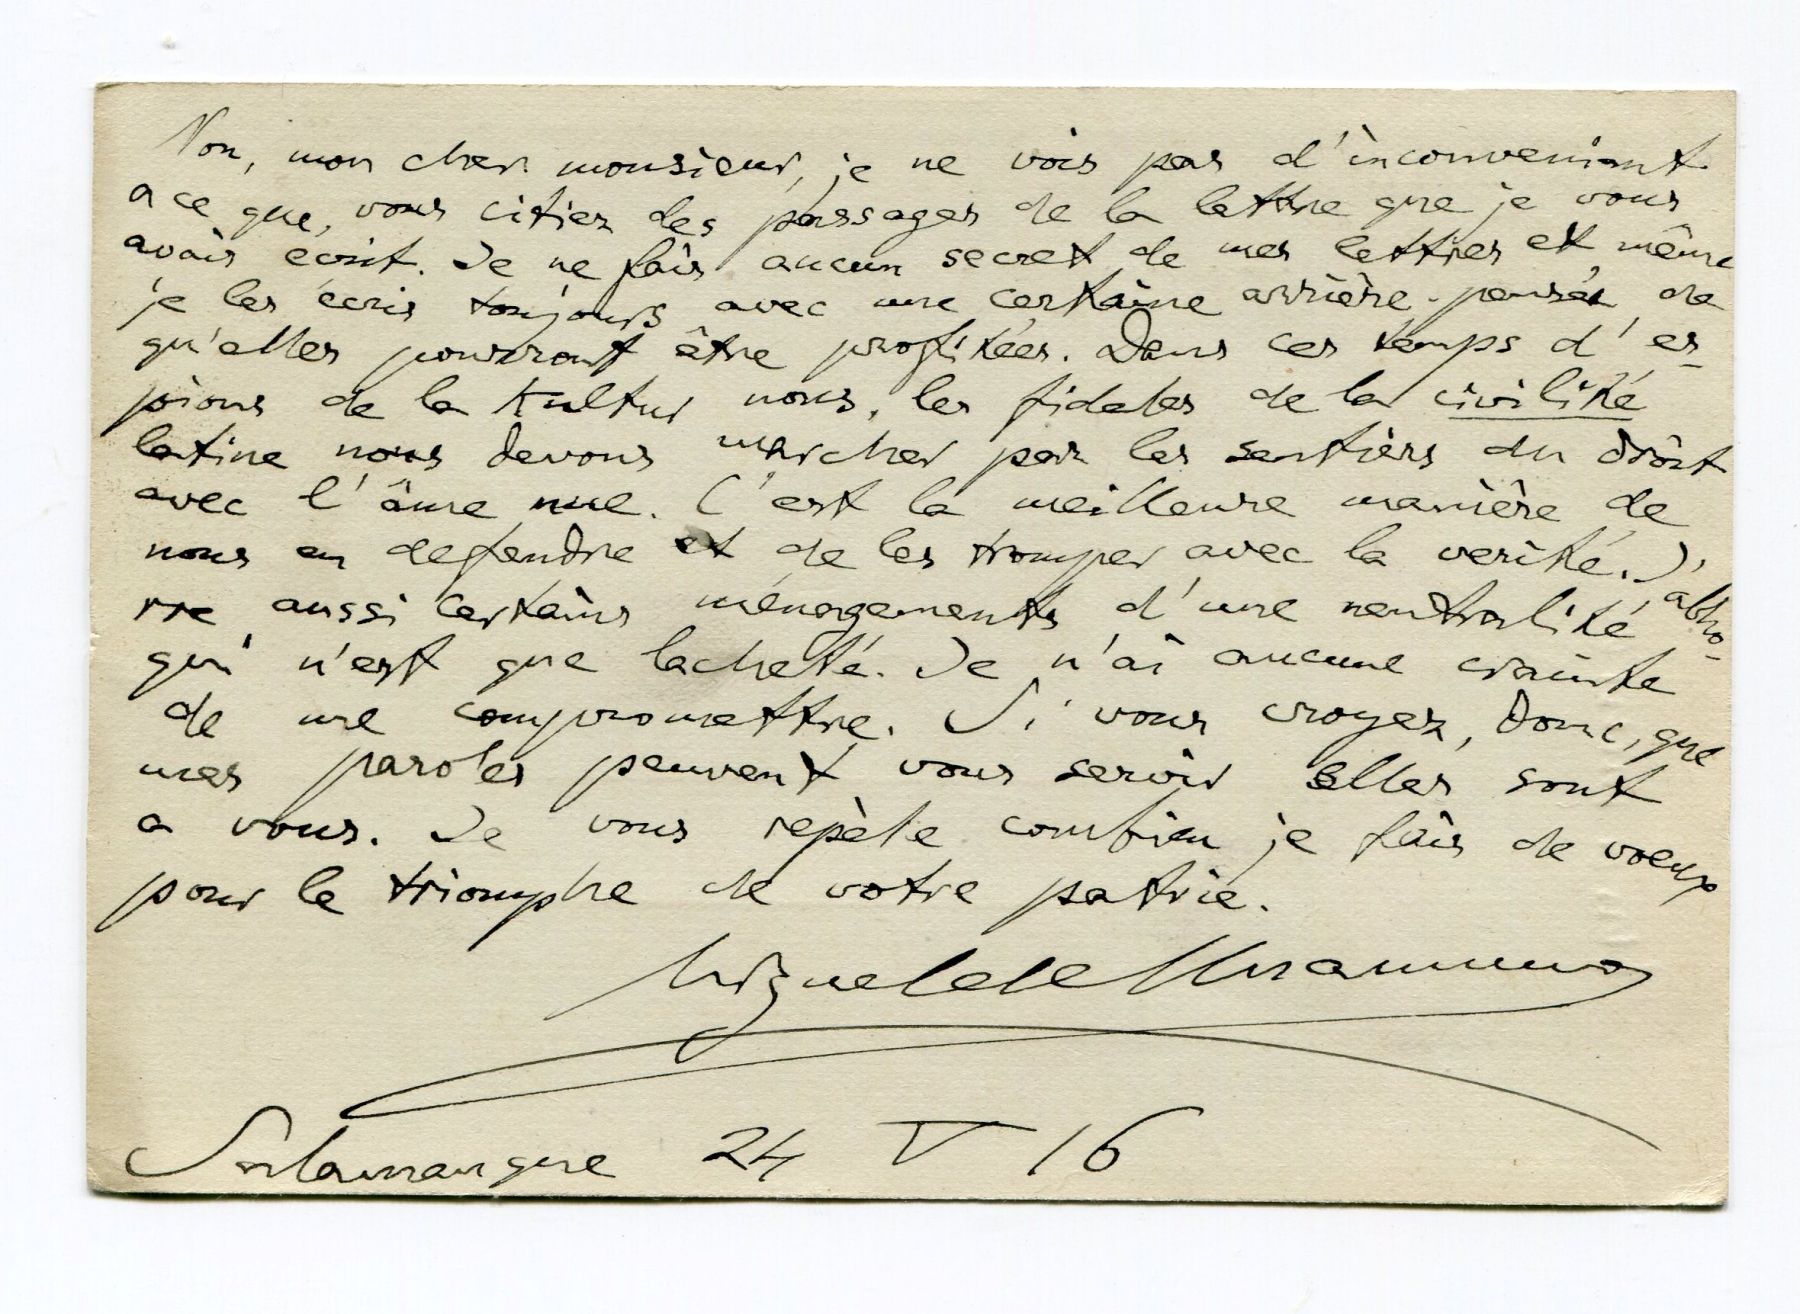 Non, mon cher monsieur, je ne vois pas d'inconvenient
a ce que, vous citiez des passages de la lettre que je vous
avais écrit. Je ne fais aucun secret de mes lettres et même
je les écris toujours avec une certaine arrière-pensée de
qu'elles pourront être profitées. Dans ces temps d'es-
pions de la Kultur nous, les fideles de la civilité
latine nous devons marcher par les sentiers du droit
avec l'âme nue. C'est la meilleure manière de
nous en defendre et de les tromper avec la verité. J'abho-
rre aussi certains ménagements d'une neutralité
qui n'est que lacheté. Je n'ai aucune crainte
de me compromettre. Si vous croyez, donc, que
mes paroles peuvent vous servir elles sont
a vous. Je vous repète combien je fais de voeux
pour le triomphe de votre patrie.
Miguel de Unamuno
Salamanque 24 V 16